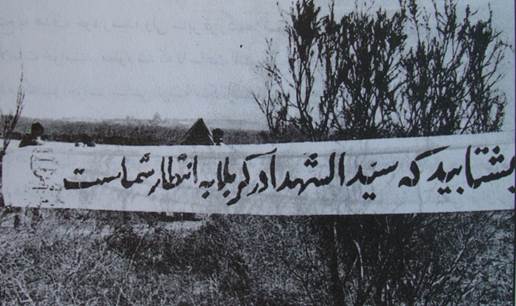 بشتابید که سید الشهدا در کربلا به انتظار شماست